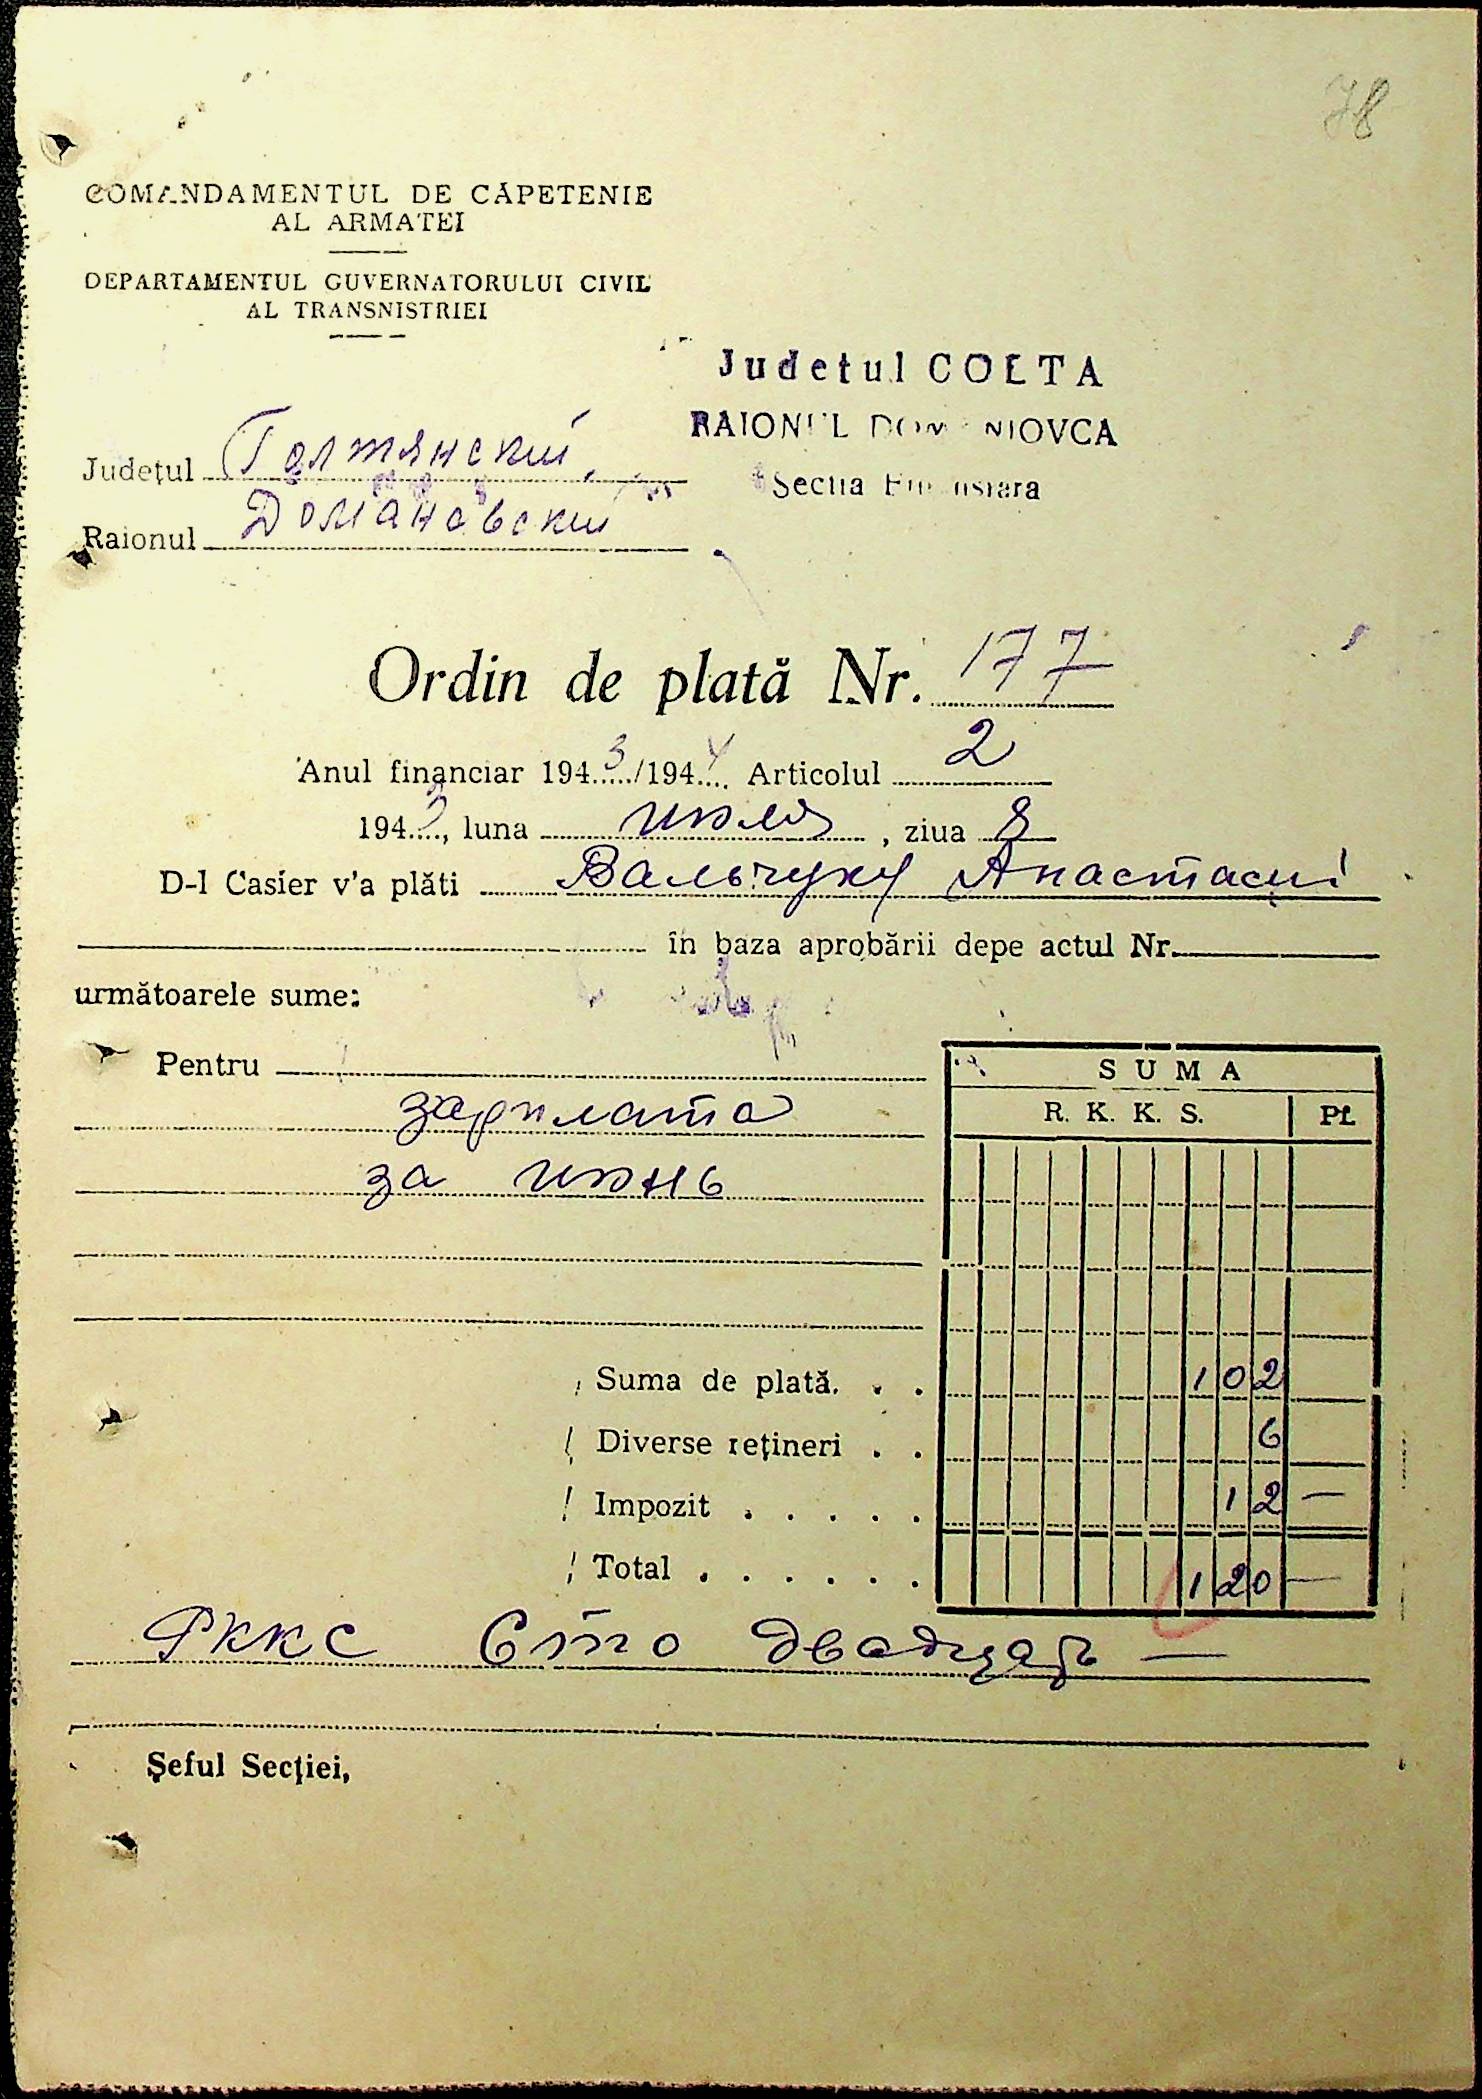 78
COMANDAMENTUL DE CĂPETENIE
AL ARMATEI
DEPARTAMENTUL GUVERNATORULUI CIVIL
AL TRANSNISTRIEI
Judetul GOLTA
RAIONUL DOMANIOVCA
Sectia Financiara
Judeţul Голтянский
Raionul Домановский
Ordin de plată Nr. 177
Anul financiar 1943/1944 Articolul 2
1943, luna июля, ziua 8
D-l Casier v'a plăti Вальчуку Анастасий
în baza aprobării depe actul Nr.
următoarele sume:
Pentru
зарплата
за июнь
SUMA
R. K. K. S. Pf.
Suma de plată. . . 102
Diverse reţineri . . 6
Impozit . . . . . 12 —
Total . . . . . . 120 —
РККС Сто двадцать —
Şeful Secţiei,